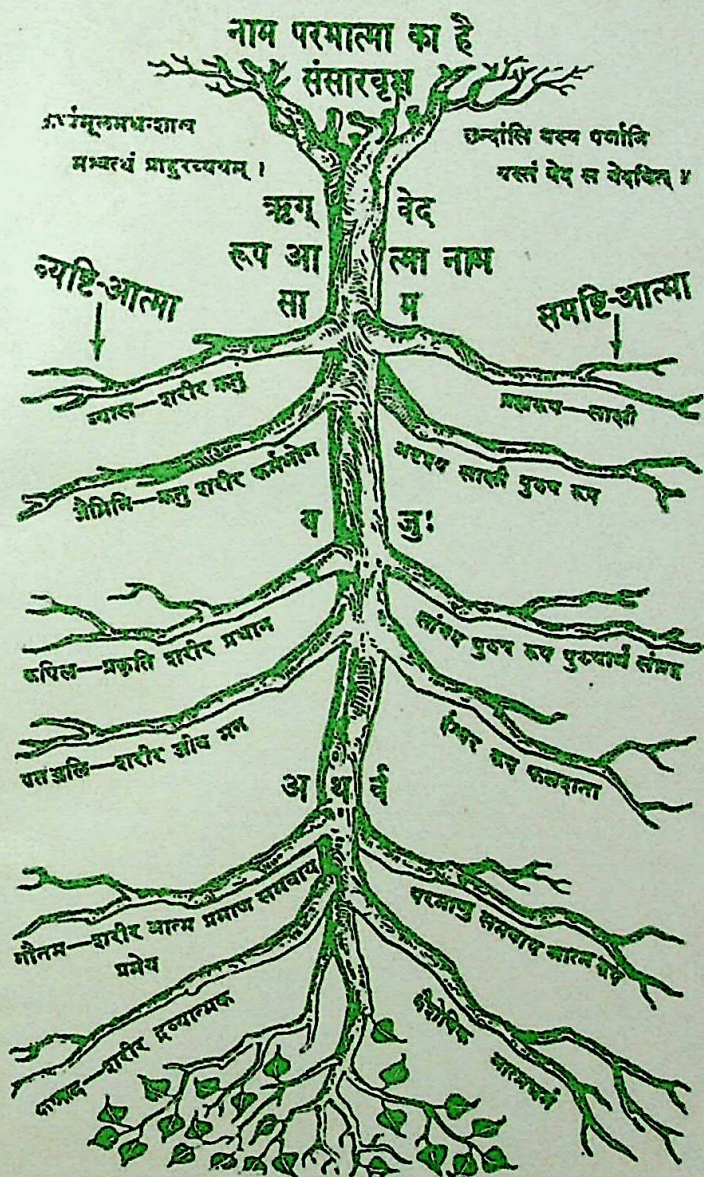 नाम परमात्मा का है
संसारवृक्ष
मश्वत्थं प्राहुरव्ययम् ।
छन्दांसि यस्य पर्णानि
यस्तं वेद स वेदवित् ॥
ऋग् वेद
रूप आत्मा नाम
साम
व्यष्टि-आत्मा
समष्टि-आत्मा
व्यास—शरीर ऋतुं
ब्रह्मरूप—साक्षी
जैमिनि—ऋतु शरीर कर्मभोग
अदृश्य साक्षी पुरुष रूप
यजुः
कपिल—प्रकृति शरीर प्रधान
सांख्य पुरुष रूप पुरुषार्थ
पतञ्जलि—शरीर जीव मन
ईश्वर रूप फलदाता
अथर्व
गौतम—शरीर आत्म प्रमाण समवाय
प्रमेय
परमाणु समवाय आत्म रूप
कणाद—शरीर द्रव्यात्मक
वैशेषिक